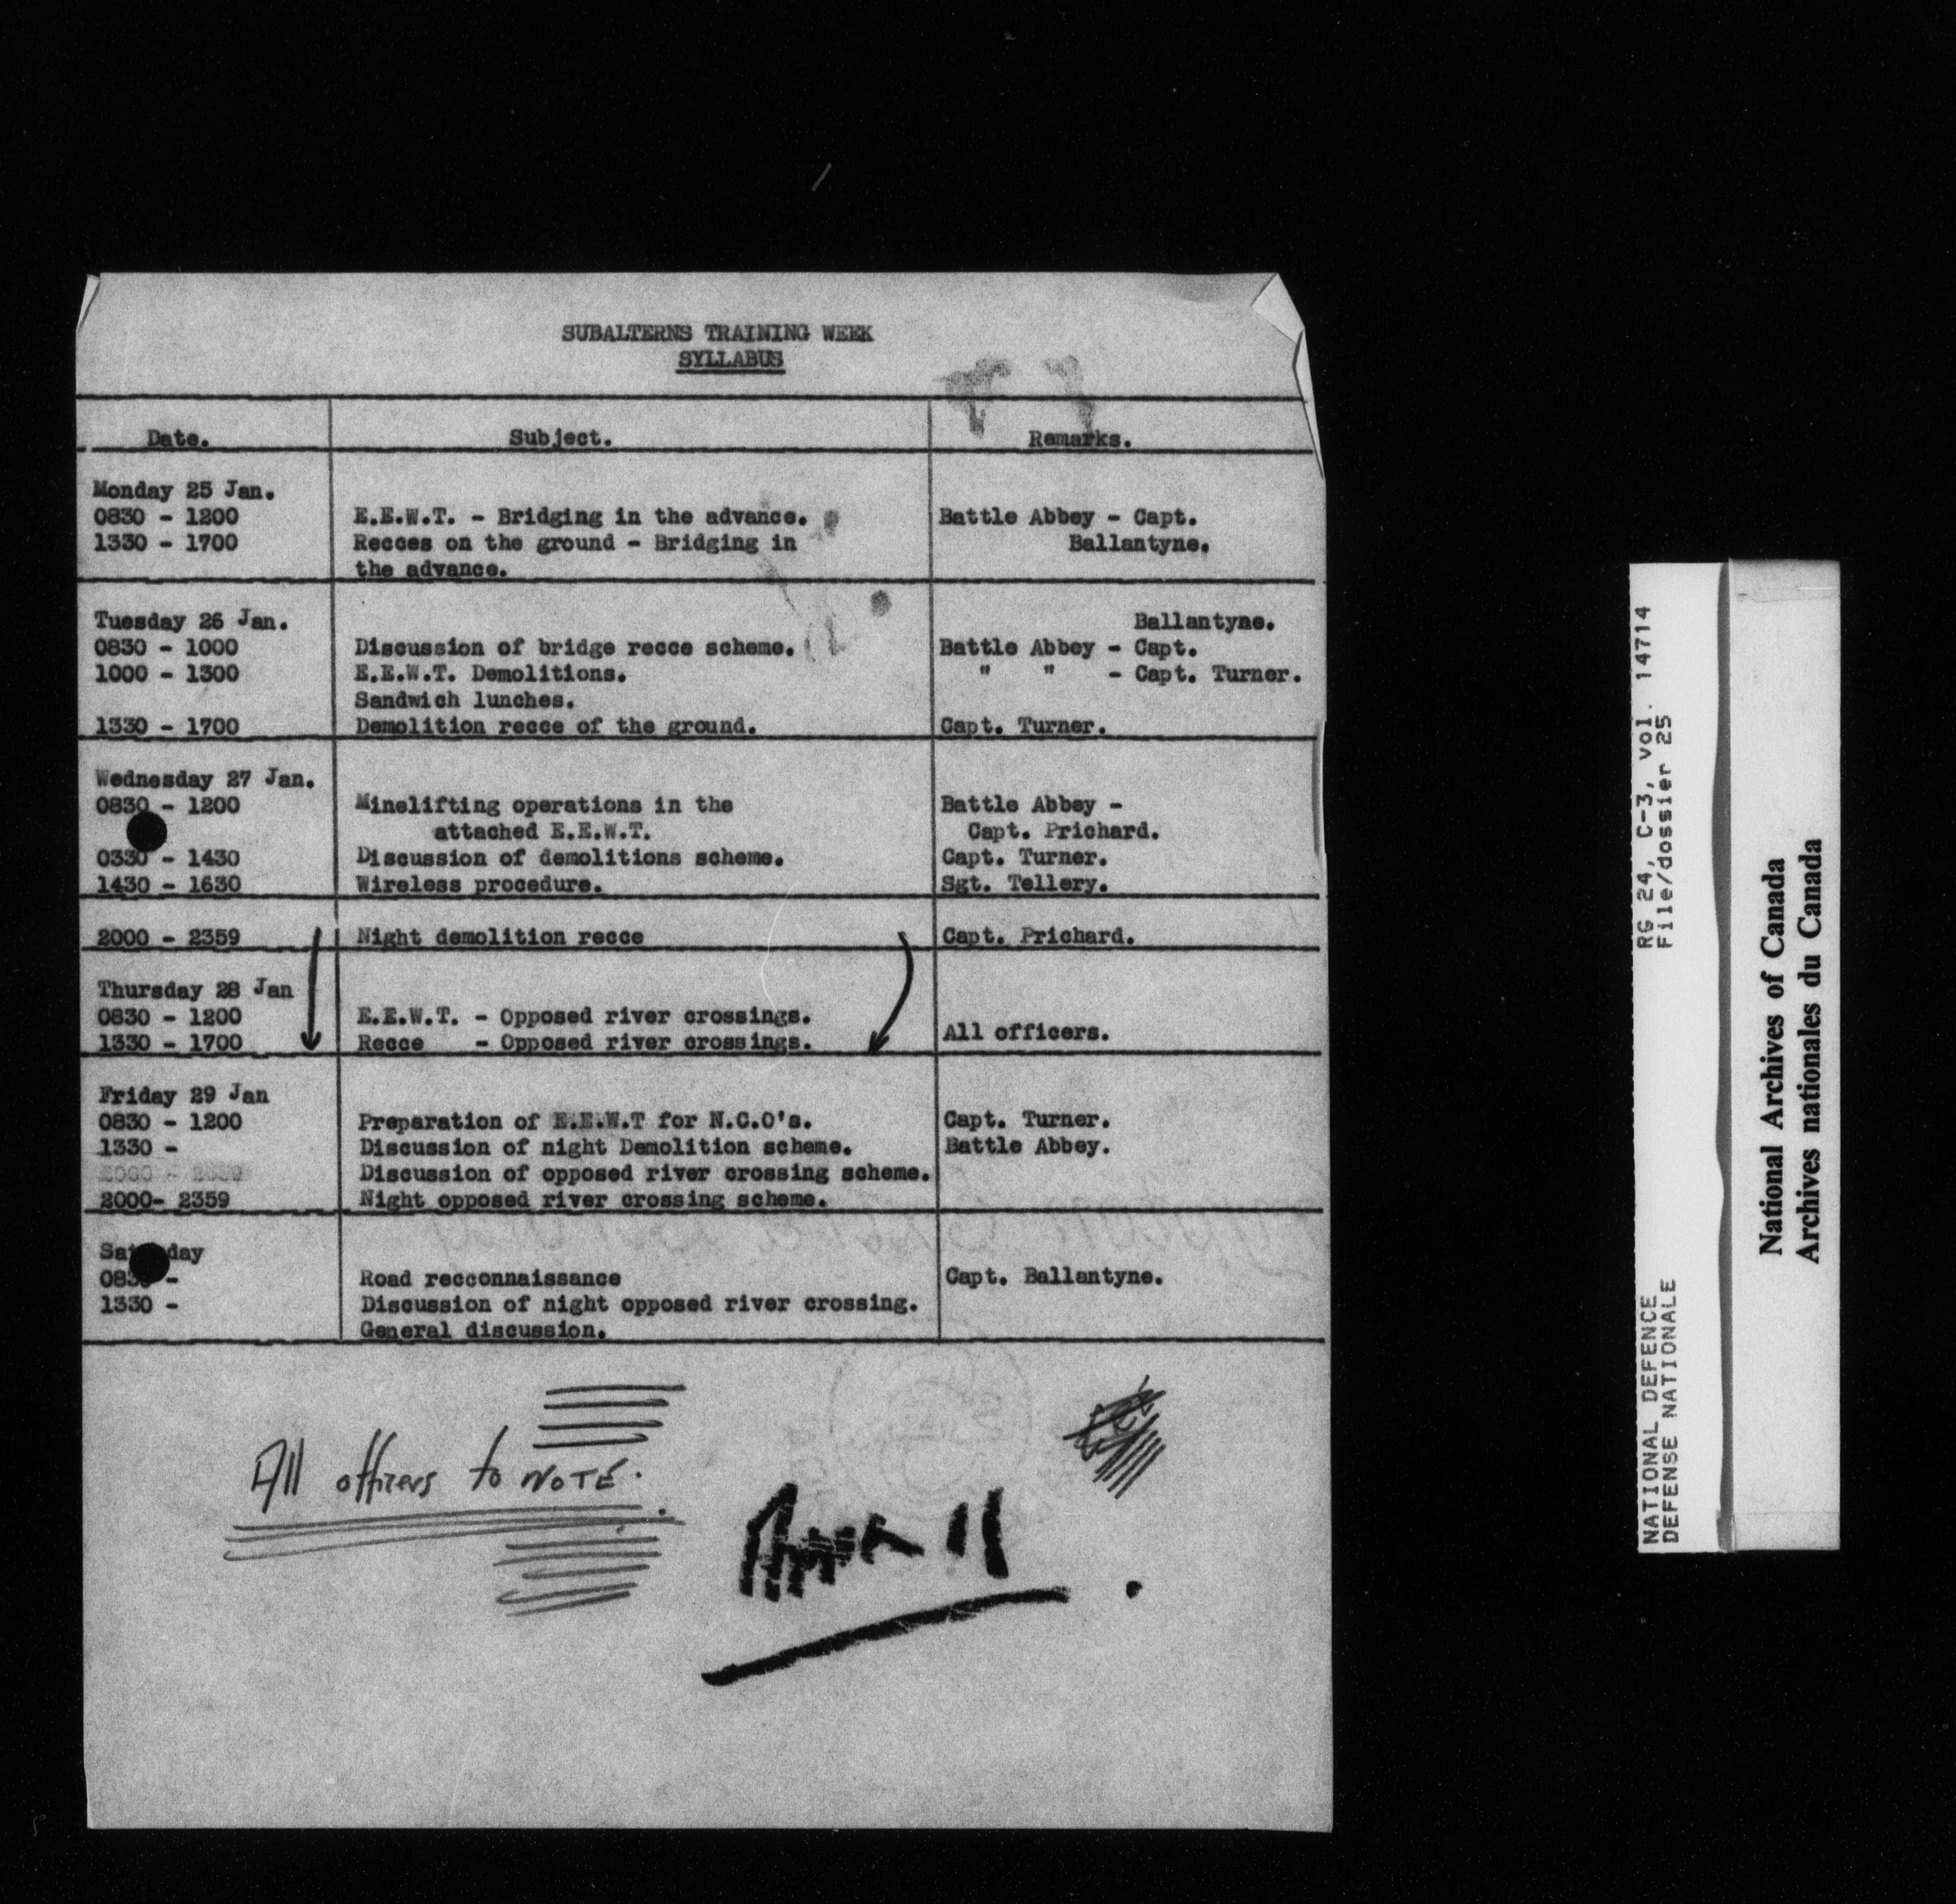 SUBALTERNS TRAINING WEEK
SYLLABUS
Date. Subject. Remarks.
Monday 25 Jan.
0830 - 1200 E.E.W.T. - Bridging in the advance. Battle Abbey - Capt.
1330 - 1700 Recces on the ground - Bridging in Ballantyne.
the advance.
Tuesday 26 Jan. Ballantyne.
0830 - 1000 Discussion of bridge recce scheme. Battle Abbey - Capt.
1000 - 1300 E.E.W.T. Demolitions. " " - Capt. Turner.
Sandwich lunches.
1330 - 1700 Demolition recce of the ground. Capt. Turner.
Wednesday 27 Jan.
0830 - 1200 Minelifting operations in the Battle Abbey -
attached E.E.W.T. Capt. Prichard.
0330 - 1430 Discussion of demolitions scheme. Capt. Turner.
1430 - 1630 Wireless procedure. Sgt. Tellery.
2000 - 2359 Night demolition recce Capt. Prichard.
Thursday 28 Jan
0830 - 1200 E.E.W.T. - Opposed river crossings.
All officers.
1330 - 1700 Recce - Opposed river crossings.
Friday 29 Jan
0830 - 1200 Preparation of E.E.W.T for N.C.O's. Capt. Turner.
1330 - Discussion of night Demolition scheme. Battle Abbey.
Discussion of opposed river crossing scheme.
2000- 2359 Night opposed river crossing scheme.
Saturday
0830 - Road recconnaissance Capt. Ballantyne.
1330 - Discussion of night opposed river crossing.
General discussion.
All officers to NOTE.
11
RG 24, C-3, vol. 14714
File/dossier 25
NATIONAL DEFENCE
DEFENSE NATIONALE
National Archives of Canada
Archives nationales du Canada